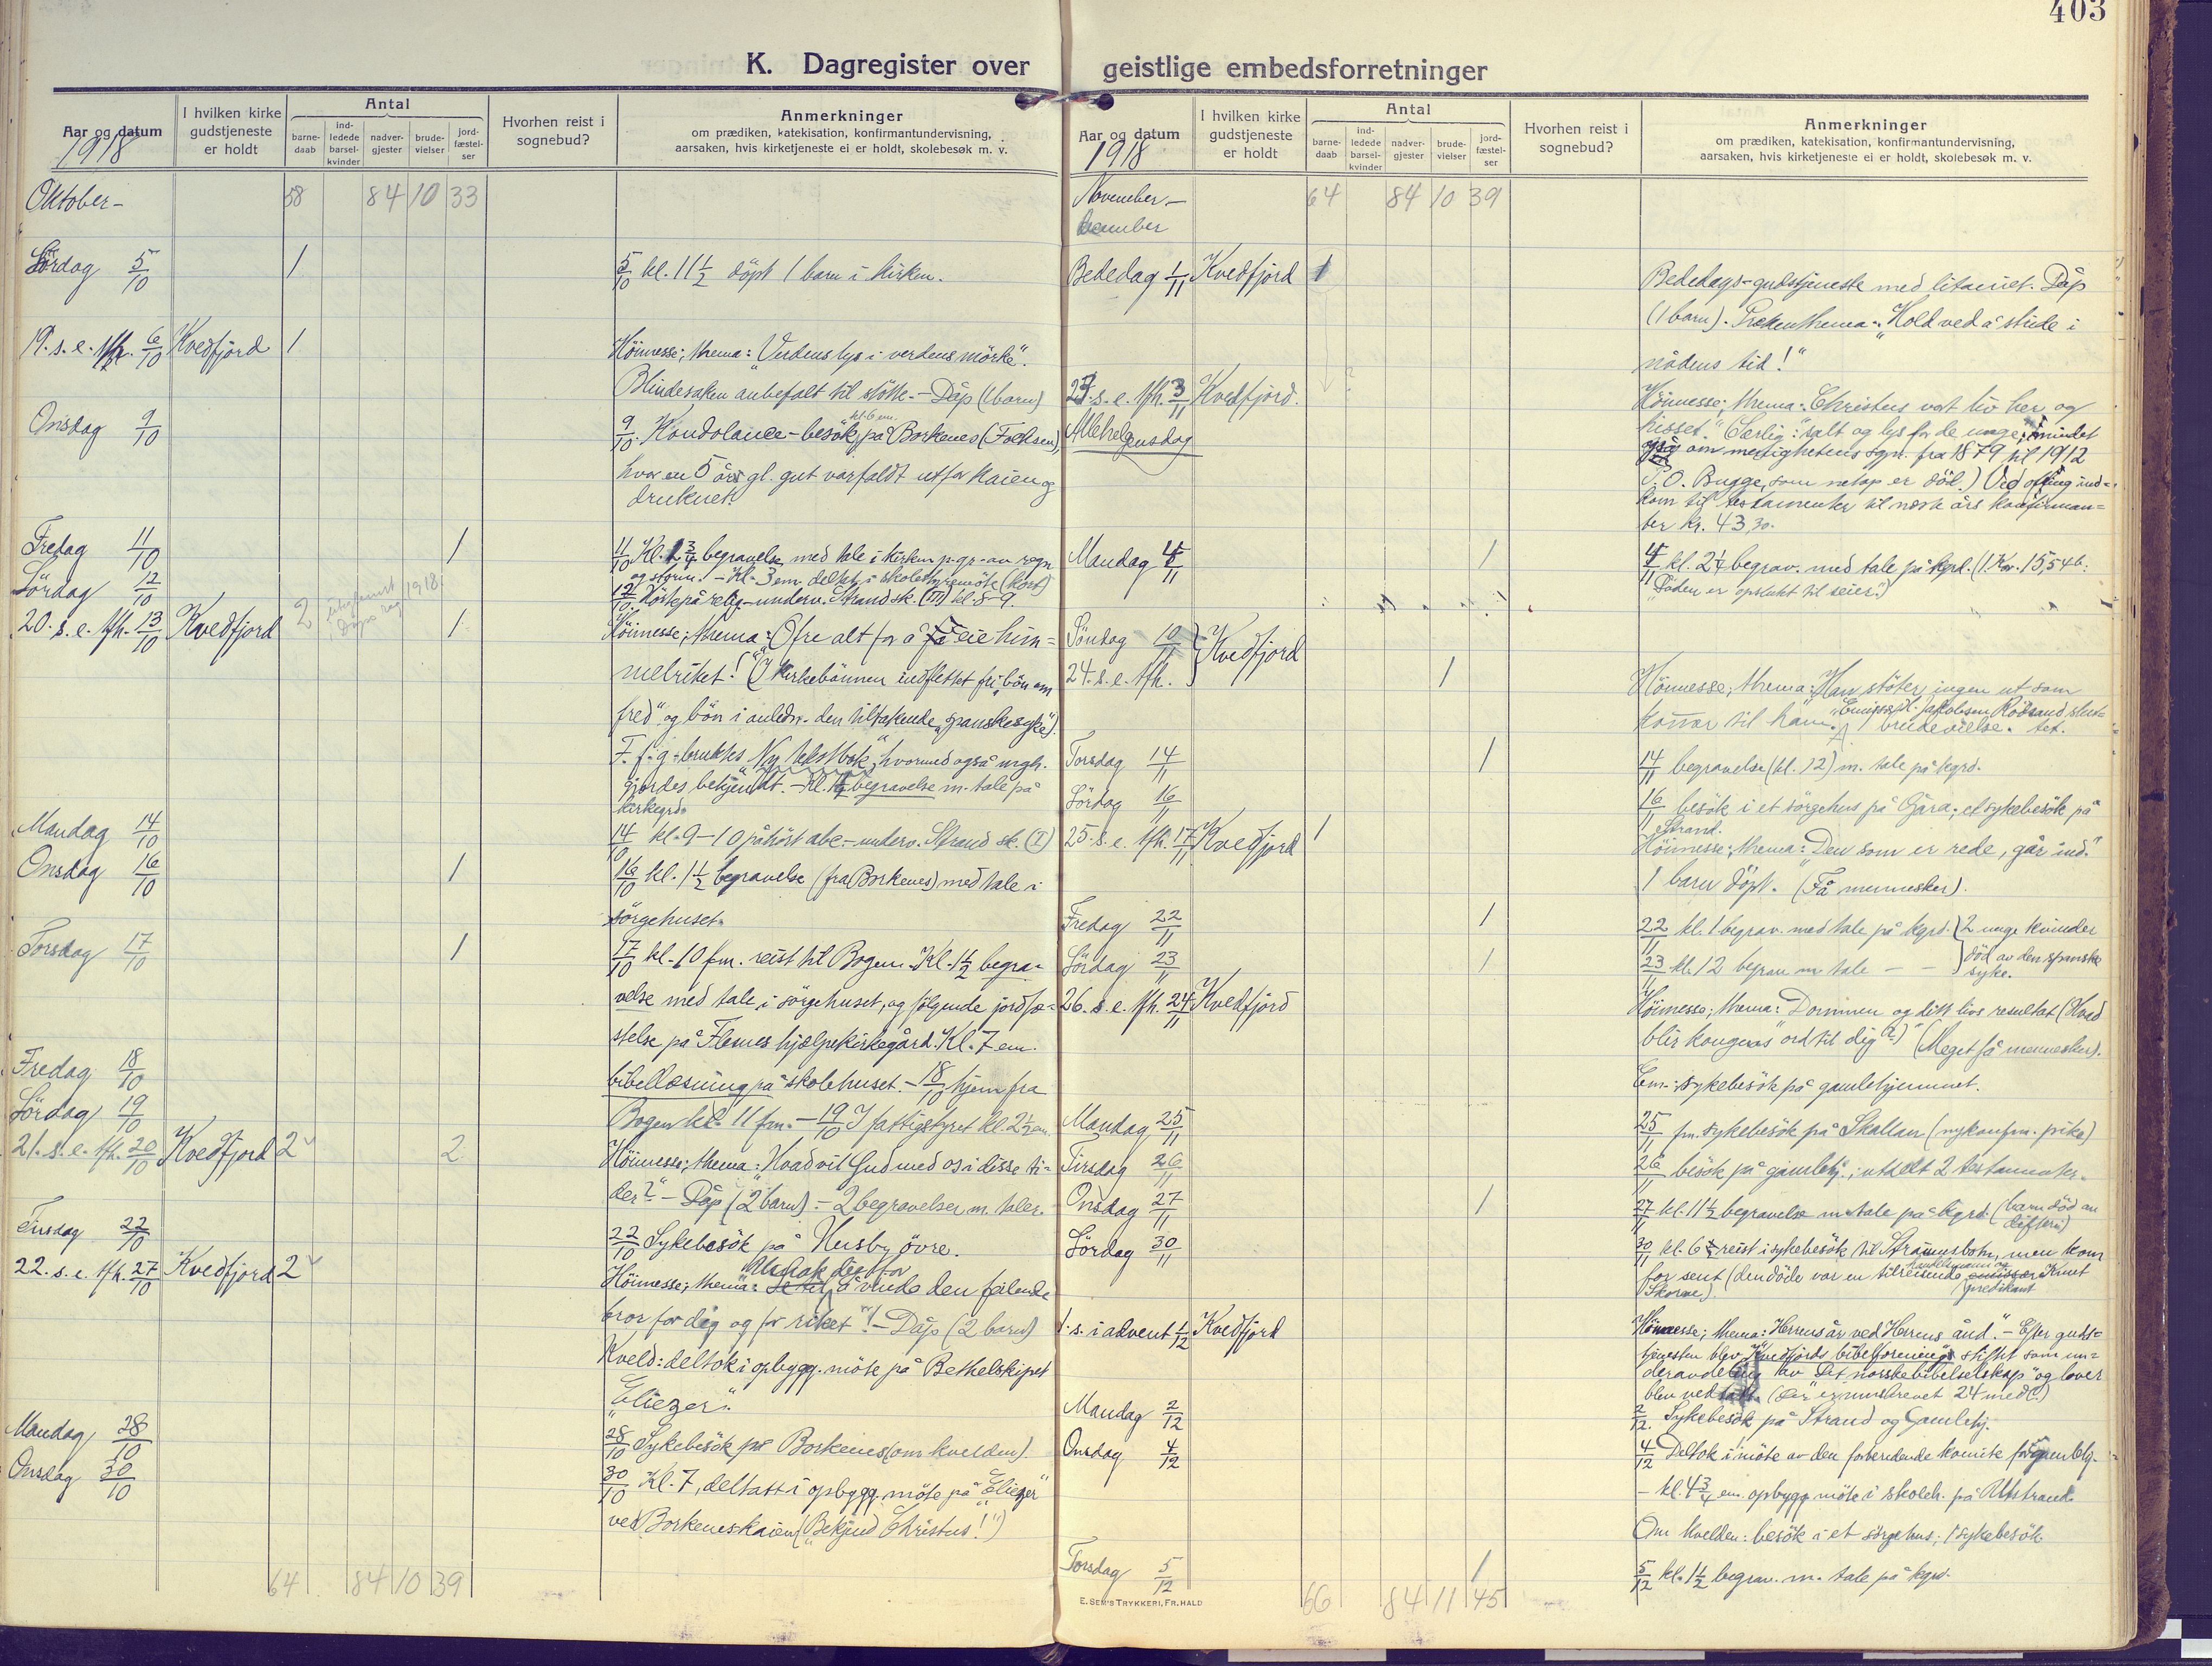 403
K. Dagregister over geistlige embedsforretninger
Aar og datum
1918
I hvilken kirke
gudstjeneste
er holdt
Antal
barne-
daab
ind-
ledede
barsel-
kvinder
nadver-
gjester
brude-
vielser
jord-
fæstel-
ser
Hvorhen reist i
sognebud?
Anmerkninger
om prædiken, katekisation, konfirmantundervisning,
aarsaken, hvis kirketjeneste ei er holdt, skolebesøk m. v.
Oktober-
58 84 10 33
Lördag 5/10 1
5/10 kl. 11 1/2 döpt 1 barn i kirken.
19. s. e. tfh. 6/10 Kvedfjord 1
Höimesse; thema: "Verdens lys i verdens mörke".
Blindesaken anbefalt til stötte. - Dåp (1 barn)
Onsdag 9/10
9/10. Kondolance-besök kl. 6 em. på Borkenes
hvor en 5 års gl. gut var faldt utfor kaien og
druknet.
Fredag 11/10 1
11/10 Kl. begravelse med tale i kirken p.gr. av regn
og storm. - Kl. 3 em. deltat i skolestyremöte (kort)
Lördag 12/10
12/10. Hörte på relig.-underv. Strand sk. (III) kl. 8-9.
20. s. e. tfh. 13/10 Kvedfjord 2 1918 1
Höimesse; thema: "Ofre alt for å få eie him-
melriket!" (I kirkebönnen indflettet fri "bön om
fred" og bön i anledn. den tiltakende "spanskesyke").
F. f. g. bruktes "Ny tekstbok", hvormed også mgh.
gjordes bekjendt. - Kl. begravelse m. tale på
kirkegrd.
Mandag 14/10
14/10 kl. 9-10 påhört abc-underv. Strand sk. (I)
Onsdag 16/10 1
16/10 kl. 1 1/2 begravelse (fra Borkenes) med tale i
sörgehuset.
Torsdag 17/10 1
17/10 kl. 10 fm. reist til Bogen. Kl. 1 1/2 begra-
velse med tale i sörgehuset, og fölgende jordfæ-
stelse på Flesnes hjælpekirkegård. Kl. 7 em.
Fredag 18/10
bibellæsning på skolehuset. - 18/10 hjem fra
Lördag 19/10
Bogen kl. 11 fm. - 19/10 I fattigstyret kl. 2 1/2 em.
21. s. e. tfh. 20/10 Kvedfjord 2 2
Höimesse; thema: "Hvad vil Gud med os i disse ti-
der?" - Dåp (2 barn) - 2 begravelser m. taler.
Tirsdag 22/10
22/10 Sykebesök på Husby övre.
22. s. e. tfh. 27/10 Kvedfjord 2
Höimesse; thema: å vinde den feilende
bror for dig og for riket"! - Dåp (2 barn)
Kveld: deltok i opbygg. möte på Bethelskipet
"Eliezer".
Mandag 28/10
28/10 Sykebesök på Borkenes (om kvelden).
Onsdag 30/10
30/10 Kl. 7, deltatt i opbygg. möte på "Eliezer"
ved Borkeneskaien ("Bekjend Christus!")
64 84 10 39
Aar og datum
1918
I hvilken kirke
gudstjeneste
er holdt
Antal
barne-
daab
ind-
ledede
barsel-
kvinder
nadver-
gjester
brude-
vielser
jord-
fæstel-
ser
Hvorhen reist i
sognebud?
Anmerkninger
om prædiken, katekisation, konfirmantundervisning,
aarsaken, hvis kirketjeneste ei er holdt, skolebesøk m. v.
November-
December
64 84 10 39
Bededag 1/11 Kvedfjord 1
Bededags-gudstjeneste med litaniet. Dåp
(1 barn). Prekenthema: "Hold ved å stride i
nådens tid!"
23. s. e. tfh. 3/11 Kvedfjord.
Allehelgensdag
Höimesse; thema: "Christus vort liv her og
hisset." (Særlig: salt og lys for de unge;" mindet
også om menighetens spr. fra 1879 til 1912
P. O. Bugge, som netop er död.) Ved ofring ind-
kom til testamenter til næste års konfirman-
ter kr. 43,30.
Mandag 4/11 1
4/11 kl. 2 1/4 begrav. med tale på kgrd. (1. Kor. 15, 54 b:
"Döden er opslukt til seier".)
Söndag 10/11
24. s. e. tfh. Kvedfjord 1
Höimesse; thema: "Han stöter ingen ut som
kommer til ham". 1 brudevielse.
Torsdag 14/11 1
14/11 begravelse (kl. 12) m. tale på kgrd.
Lördag 16/11
16/11 besök i et sörgehus på Gåra; et sykebesök på
Strand.
25. s. e. tfh. 17/11 Kvedfjord 1
Höimesse; thema: "Den som er rede, går ind."
1 barn döpt. (Få mennesker).
Fredag 22/11 1
22/11 kl. 1 begrav. med tale på kgrd. } 2 unge kvinder
Lördag 23/11 1
23/11 kl. 12 begrav m tale - - } död av den spanske
syke.
26. s. e. tfh. 24/11 Kvedfjord
Höimesse; thema: Dommen og ditt livs resultat (Hvad
blir kongens ord til dig?)" (Meget få mennesker).
Em.: sykebesök på gamlehjemmet.
Mandag 25/11
25/11 fm. sykebesök på Skallan (nykonfm. pike)
Tirsdag 26/11
26/11 besök på gamlehj.; utdelt 2 testamenter.
Onsdag 27/11 1
27/11 kl. 11 1/2 begravelse m tale på kgrd. (barn död av
difteri)
Lördag 30/11
30/11 kl. 6 reist i sykebesök til Straumsbotn, men kom
for sent (den döde var en tilreisende handelsmann og predikant Knut
Skorve).
1. s. i advent 1/12 Kvedfjord
Höimesse; thema: "Herrens år ved Herrens ånd". - Efter guds-
tjenesten blev "Kvedfjords bibelforening" stiftet som un-
deravdeling av "Det norske bibelselskap" og lover
blev vedtatt.
Mandag 2/12
2/12. Sykebesök på Strand og Gamlehj.
Onsdag 4/12
4/12 Deltok i möte av den forberedende komite for
- kl. 4 3/4 em. opbygg. möte i skoleh. på Utstrand.
Om kvelden: besök i et sörgehus; 1 sykebesök.
Torsdag 5/12 1
5/12 kl. 1 1/2 begrav. m. tale på kgrd.
66 84 11 45
E. SEM'S TRYKKERI, FR. HALD